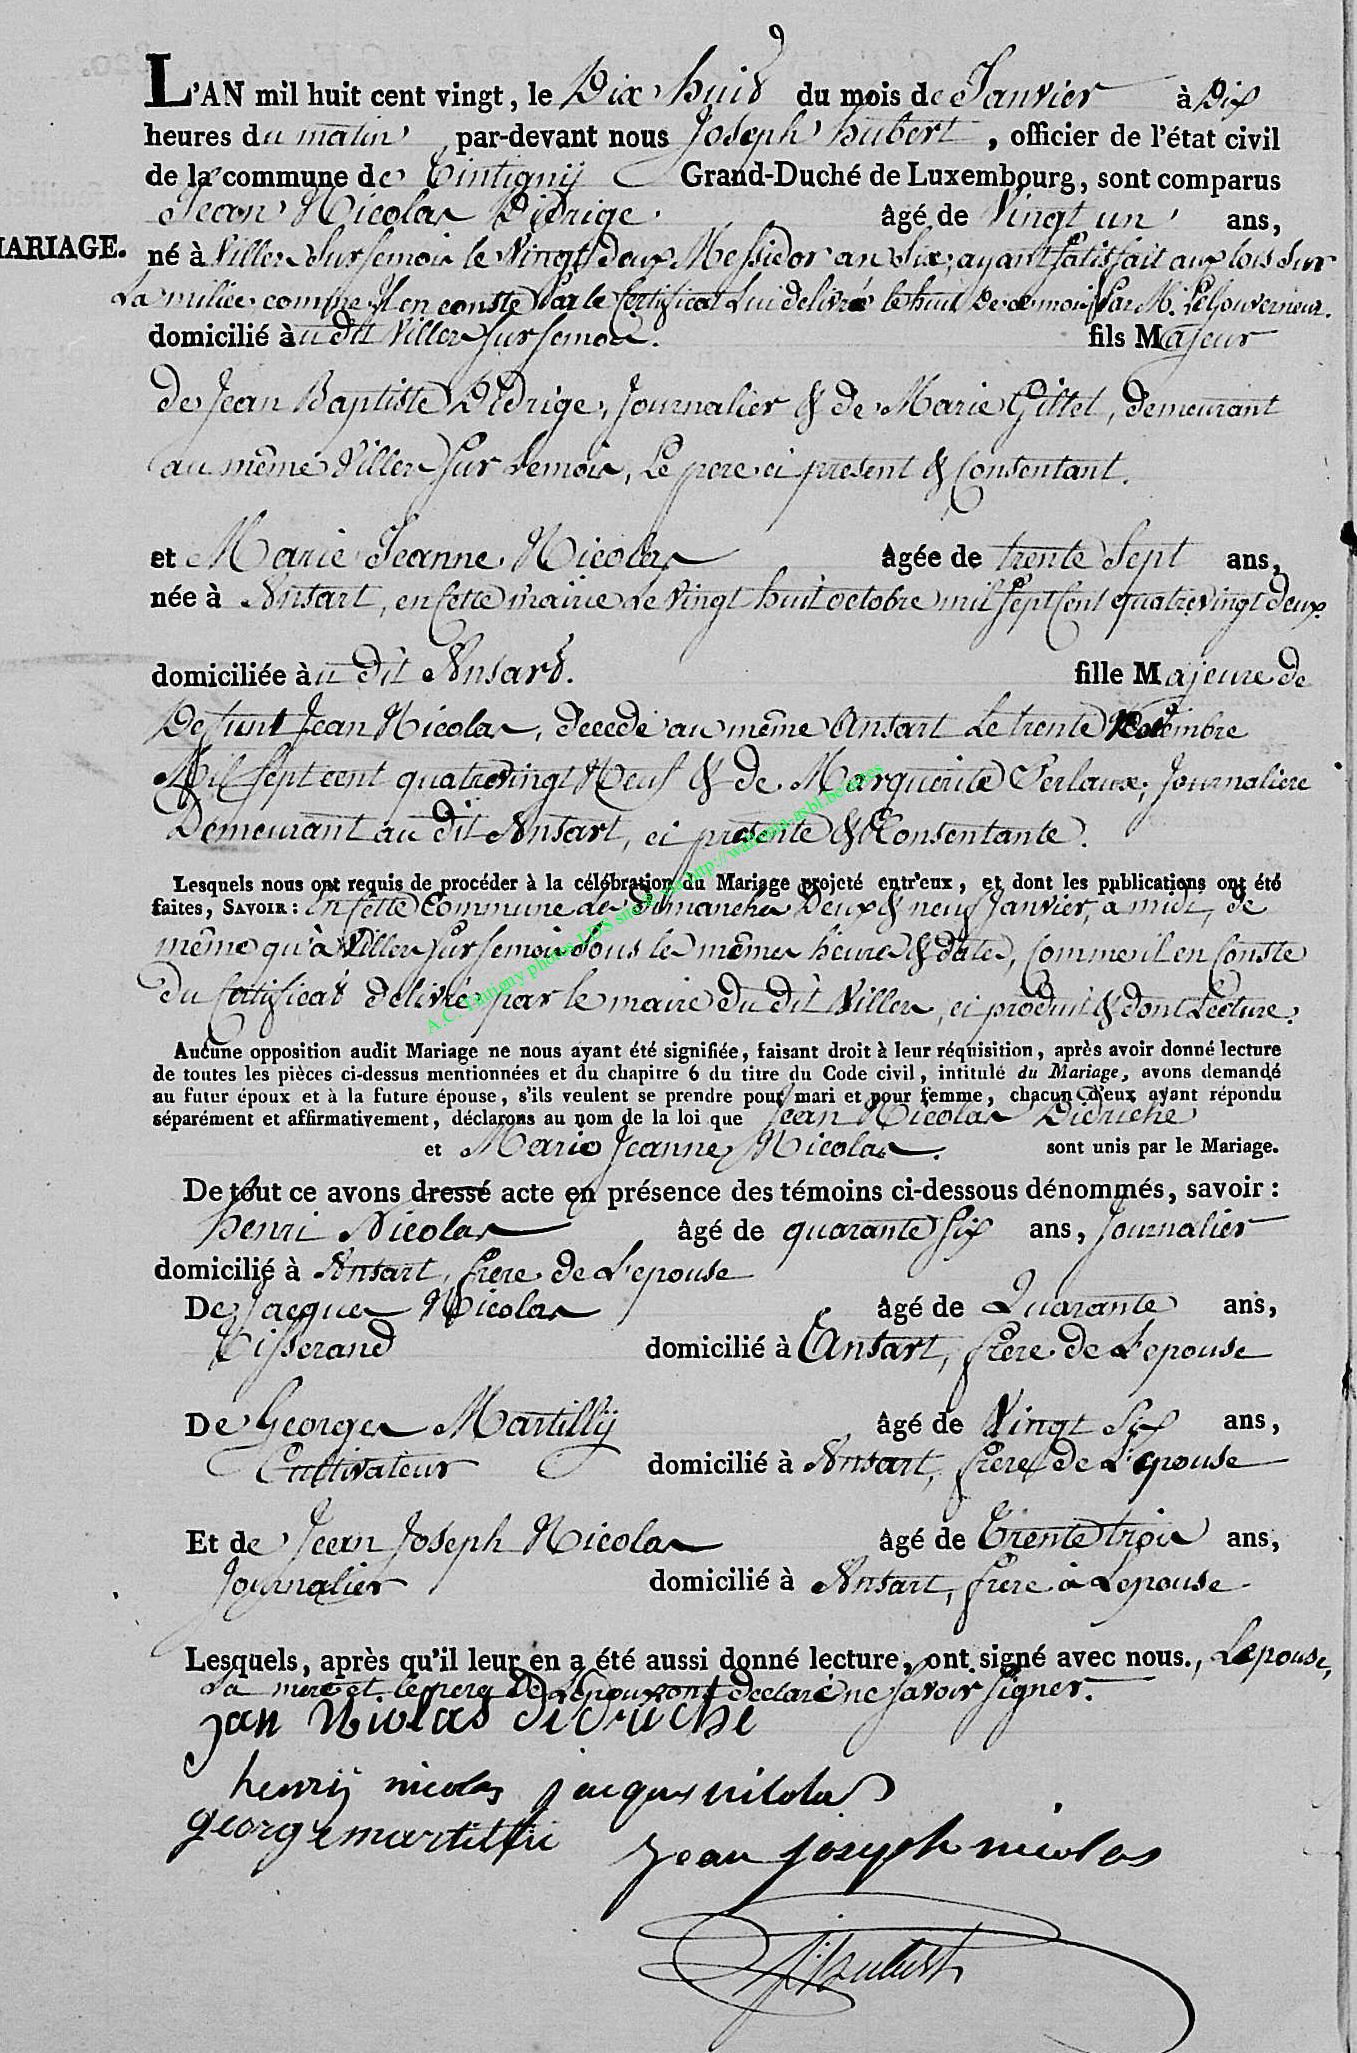 9
L'AN mil huit cent vingt, le Dix huit du mois de Janvier à Dix
heures du matin, par-devant nous Joseph hubert, officier de l'état civil
de la commune de Tintigny Grand-Duché de Luxembourg, sont comparus
Jean Nicolas Didrige âgé de Vingt un ans,
MARIAGE.
né à Villers Sur Semois le Vingt deux Messidor an Six, ayant satisfait aux lois sur
La milice comme Il en conste Par le Certificat Lui delivré le huit De ce mois Par Mr. Le Gouverneur.
domicilié au dit Villers sur semois. fils Majeur
de Jean Baptiste Didrige, Journalier & de Marie Gillet, demeurant
au même Villers sur semois, Le pere ci present & Consentant.
et Marie Jeanne Nicolas agée de trente Sept ans,
née à Ansart, en cette mairie Le Vingt huit octobre mil sept Cent quatre vingt deux
domiciliée au dit Ansart. fille Majeure de
Defunt Jean Nicolas, decedé au même Ansart Le trente
Mil sept cent quatrevingt Neuf & de Marguerite Perlaux, Journaliere
Demeurant au dit Ansart, ci presente & Consentante.
Lesquels nous ont requis de procéder à la célébration du Mariage projeté entr'eux, et dont les publications ont été
faites, SAVOIR: En Cette Commune les Dimanches Deux & neuf Janvier, a midi, de
même qu'à Villers sur semois sous les mêmes heures & dates, Comme il en Conste
du Certificat delivré par le maire du dit Villers, ci produit & dont Lecture.
A.C. Tintigny photos LDS sne via http://wallonia-asbl.be/tables
Aucune opposition audit Mariage ne nous ayant été signifiée, faisant droit à leur réquisition, après avoir donné lecture
de toutes les pièces ci-dessus mentionnées et du chapitre 6 du titre du Code civil, intitulé du Mariage, avons demandé
au futur époux et à la future épouse, s'ils veulent se prendre pour mari et pour femme, chacun d'eux ayant répondu
séparément et affirmativement, déclarons au nom de la loi que Jean Nicolas Didriche
et Marie Jeanne Nicolas. sont unis par le Mariage.
De tout ce avons dressé acte en présence des témoins ci-dessous dénommés, savoir:
henri Nicolas âgé de quarante Six ans, Journalier
domicilié à Ansart, frere de L'epouse
De Jacques Nicolas âgé de Quarante ans,
Tisserand domicilié à Ansart, frere de L'epouse
De Georges Martilly âgé de Vingt Six ans,
Cultivateur domicilié à Ansart, frere de L'epouse
Et de Jean Joseph Nicolas âgé de Trente trois ans,
Journalier domicilié à Ansart, frere a Lepouse
Lesquels, après qu'il leur en a été aussi donné lecture, ont signé avec nous., Lepouse,
La mere et le pere De Lepoux ont declaré ne savoir signer.
jan Nicolas didriche
henrij nicolas jacque nicolas
george martillii jean joseph nicolas
J: hubert